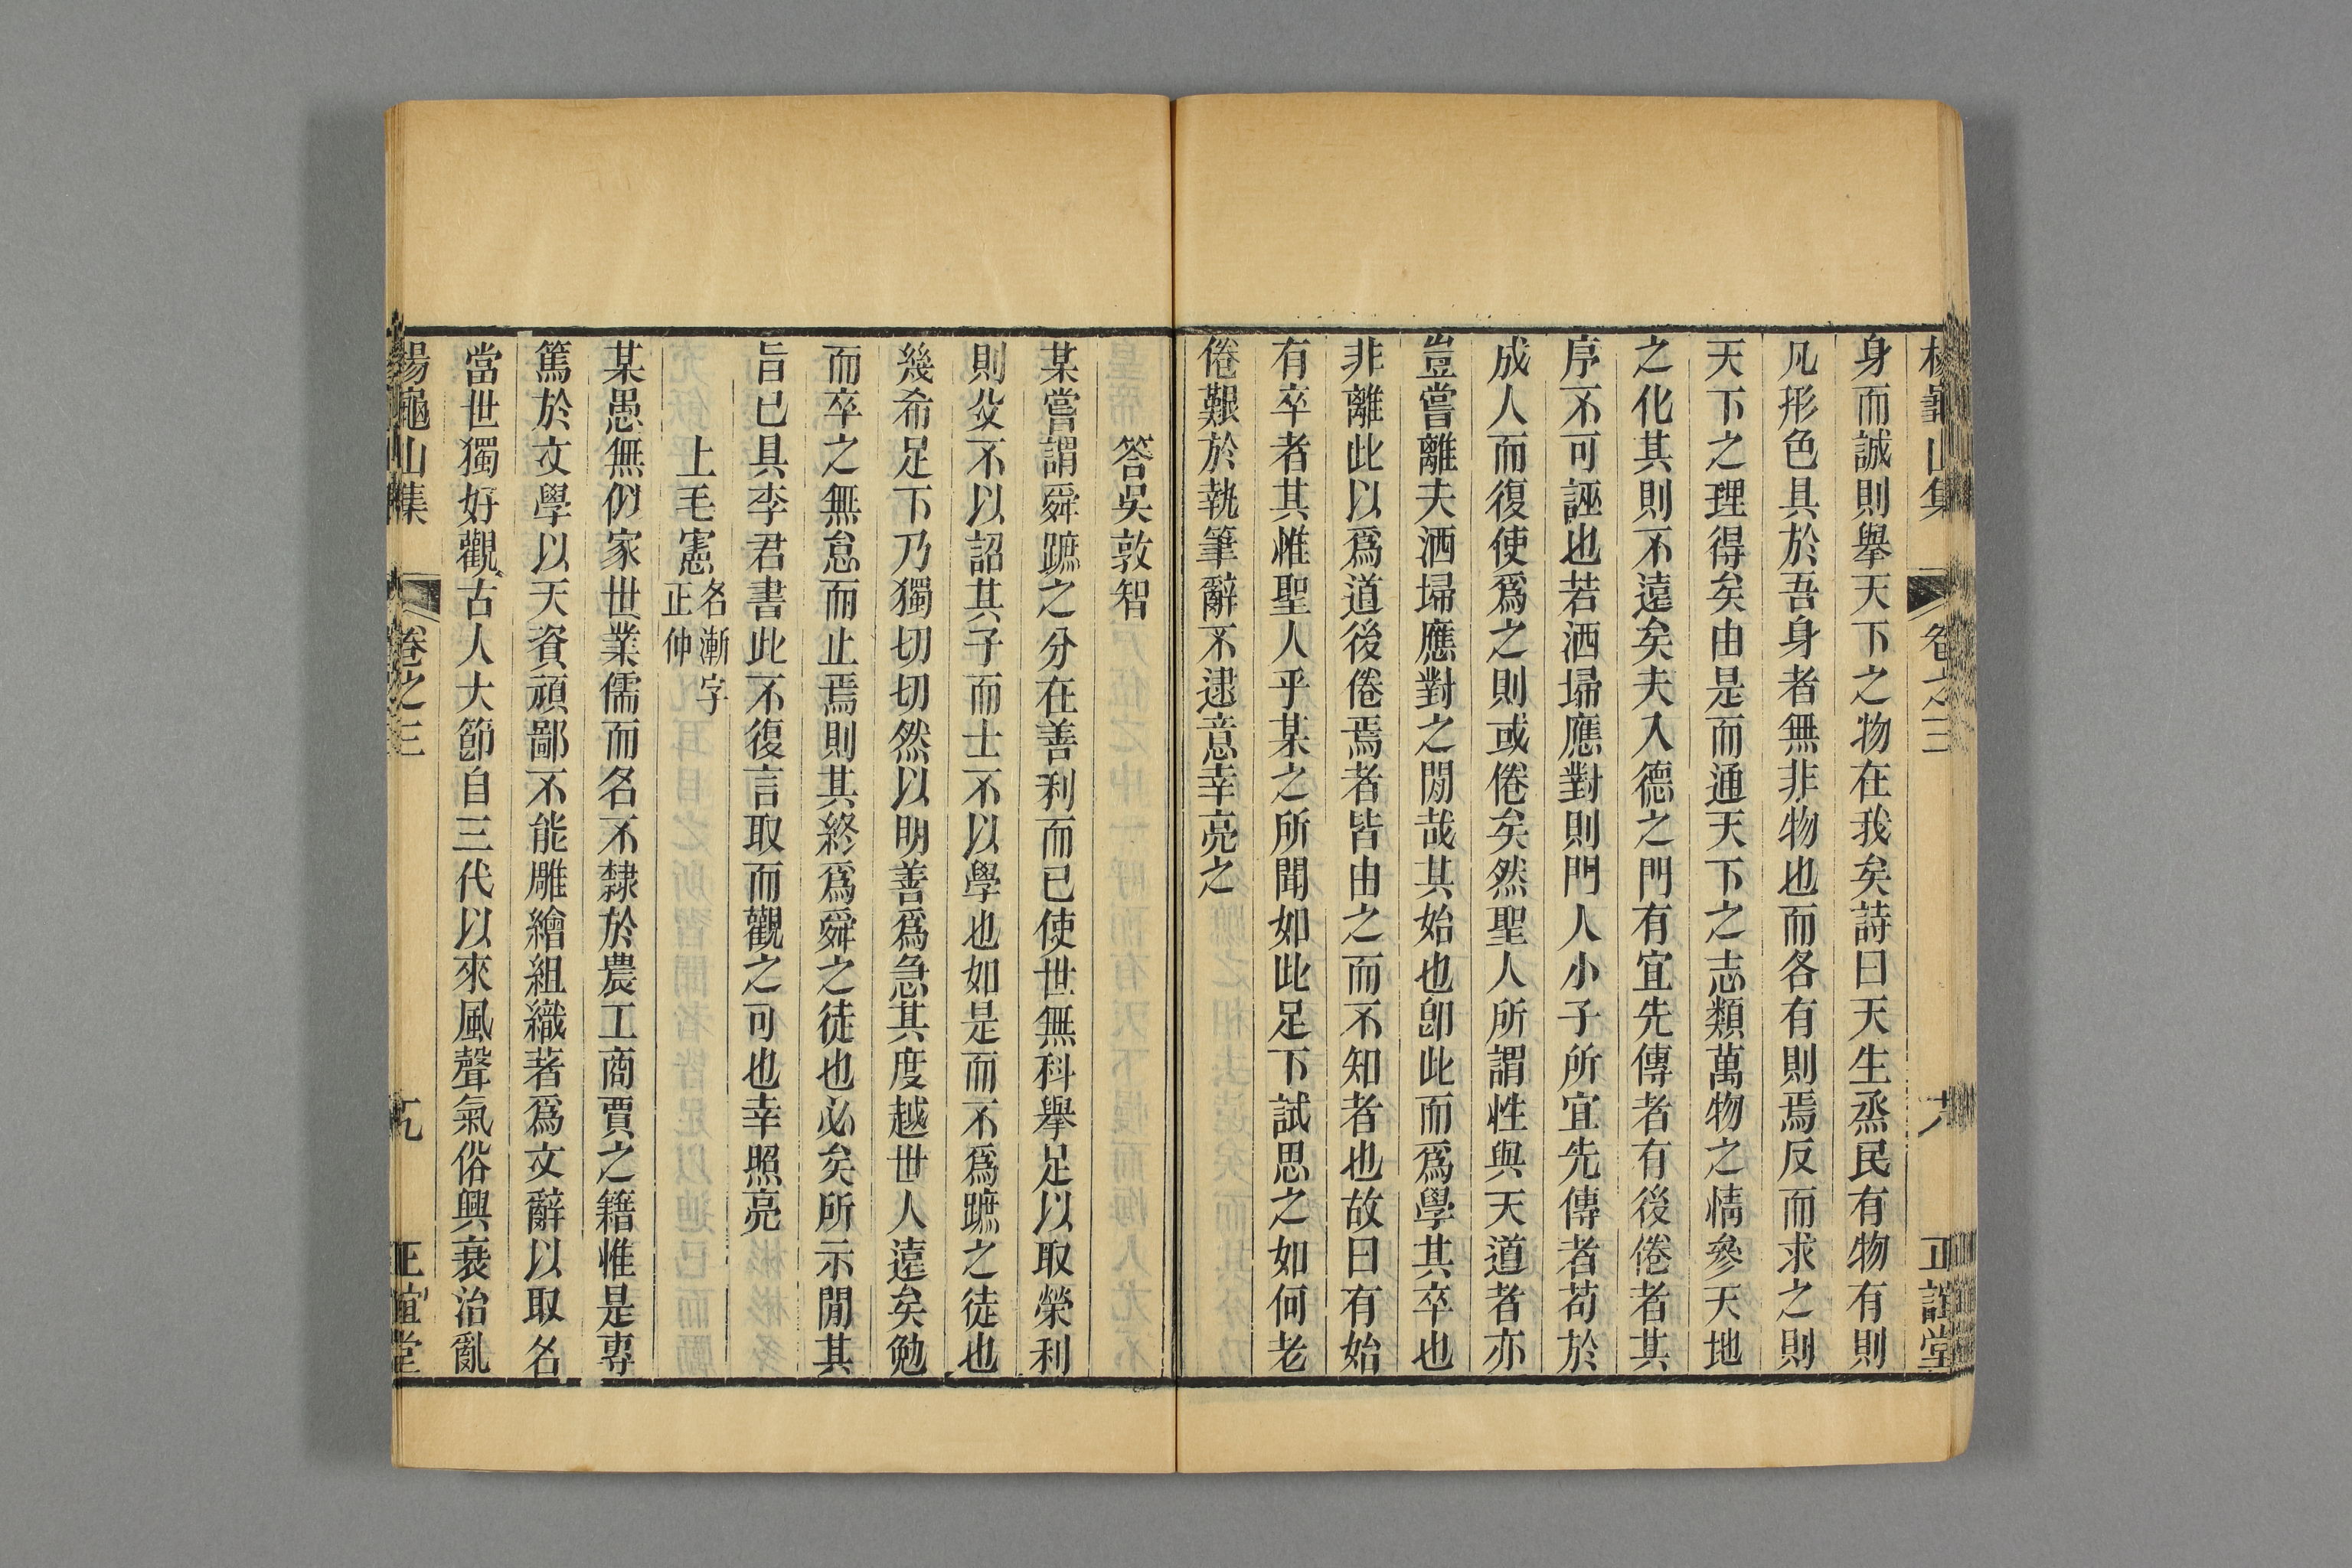 楊龜山集 卷之三 八 正誼堂
身而誠則舉天下之物在我矣詩曰天生烝民有物有則
凡形色具於吾身者無非物也而各有則焉反而求之則
天下之理得矣由是而通天下之志類萬物之情參天地
之化其則不遠矣夫入德之門有宜先傳者有後倦者其
序不可誣也若洒埽應對則門人小子所宜先傳者苟於
成人而復使爲之則或倦矣然聖人所謂性與天道者亦
豈嘗離夫洒埽應對之閒哉其始也卽此而爲學其卒也
非離此以爲道後倦焉者皆由之而不知者也故曰有始
有卒者其惟聖人乎某之所聞如此足下試思之如何老
倦艱於執筆辭不逮意幸亮之
答吳敦智
某嘗謂舜蹠之分在善利而已使世無科舉足以取榮利
則父不以詔其子而士不以學也如是而不爲蹠之徒也
幾希足下乃獨切切然以明善爲急其度越世人遠矣勉
而卒之無怠而止焉則其終爲舜之徒也必矣所示閒其
旨已具李君書此不復言取而觀之可也幸照亮
上毛憲名漸字正仲
某愚無似家世業儒而名不隸於農工商賈之籍惟是專
篤於文學以天資頑鄙不能雕繪組織著爲文辭以取名
當世獨好觀古人大節自三代以來風聲氣俗興衰治亂
楊龜山集 卷之三 九 正誼堂